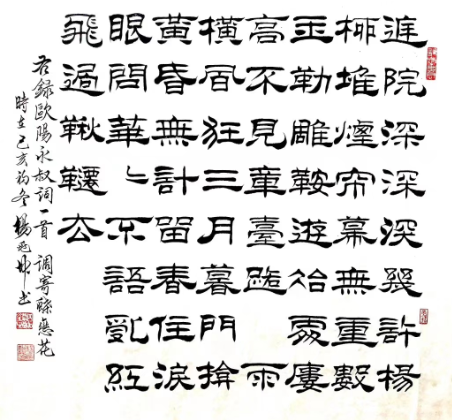 庭院深深深幾許楊
柳堆煙帘幕無重數
玉勒雕鞍遊冶處廔
高不見章臺路雨
橫風狂三月暮門揜
黃昏無計留春住淚
眼問華〻不語亂紅
飛過鞦韆去
右錄歐陽永叔詞一首 調寄蝶戀花
時在己亥初冬楊書